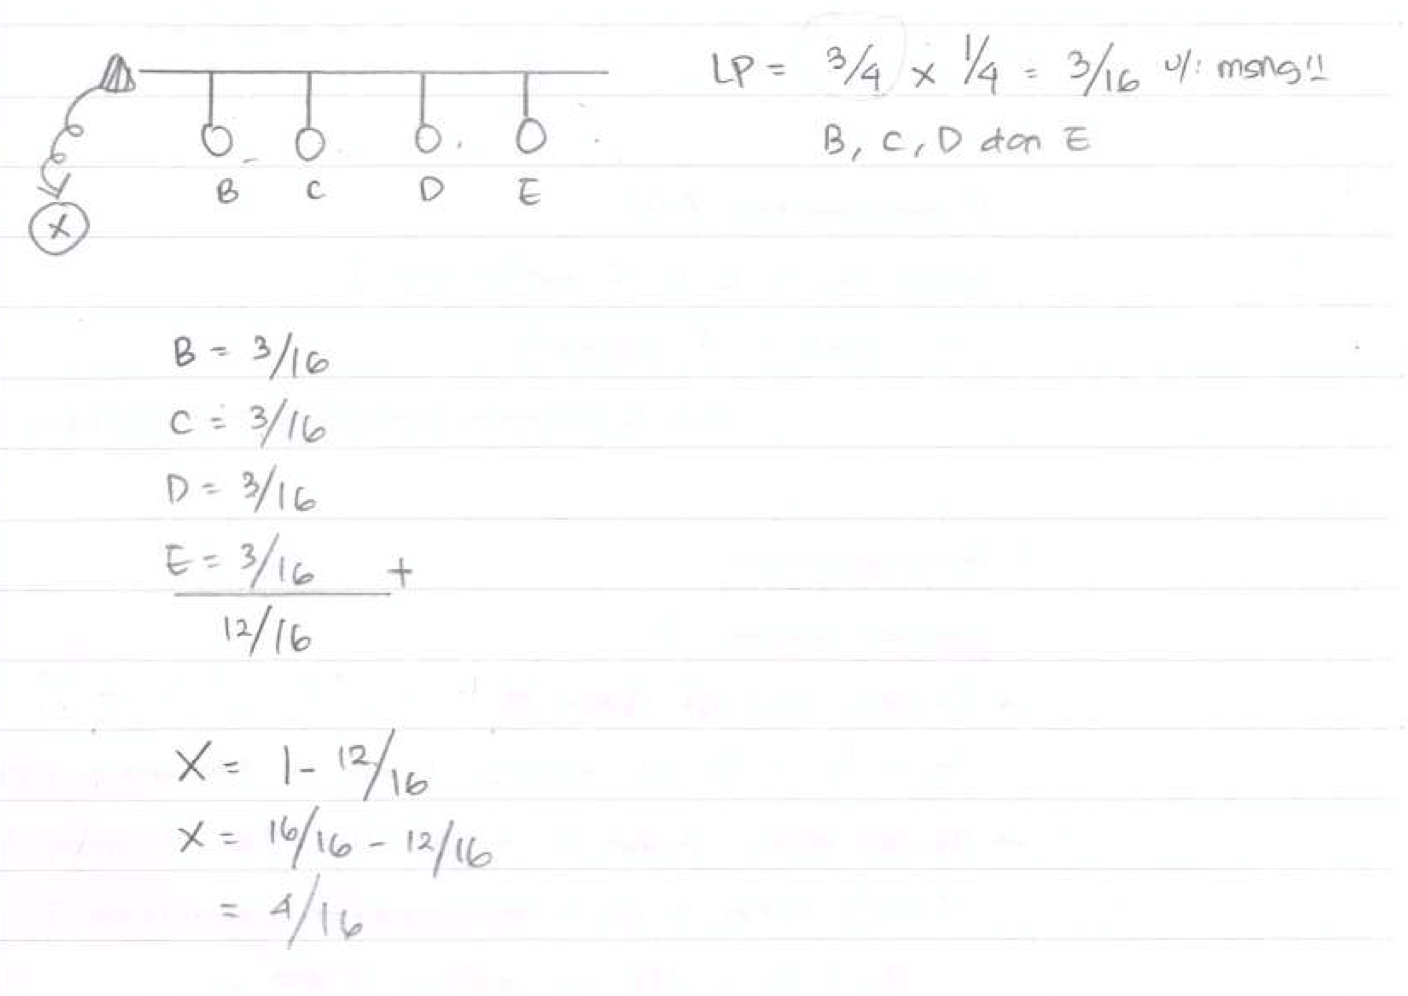 LP = 3/4 x 1/4 = 3/16 u/: msng"
B, C, D dan E
B C D E
X
B = 3/16
C = 3/16
D = 3/16
E = 3/16 +
12/16
X = 1 - 12/16
X = 16/16 - 12/16
= 4/16